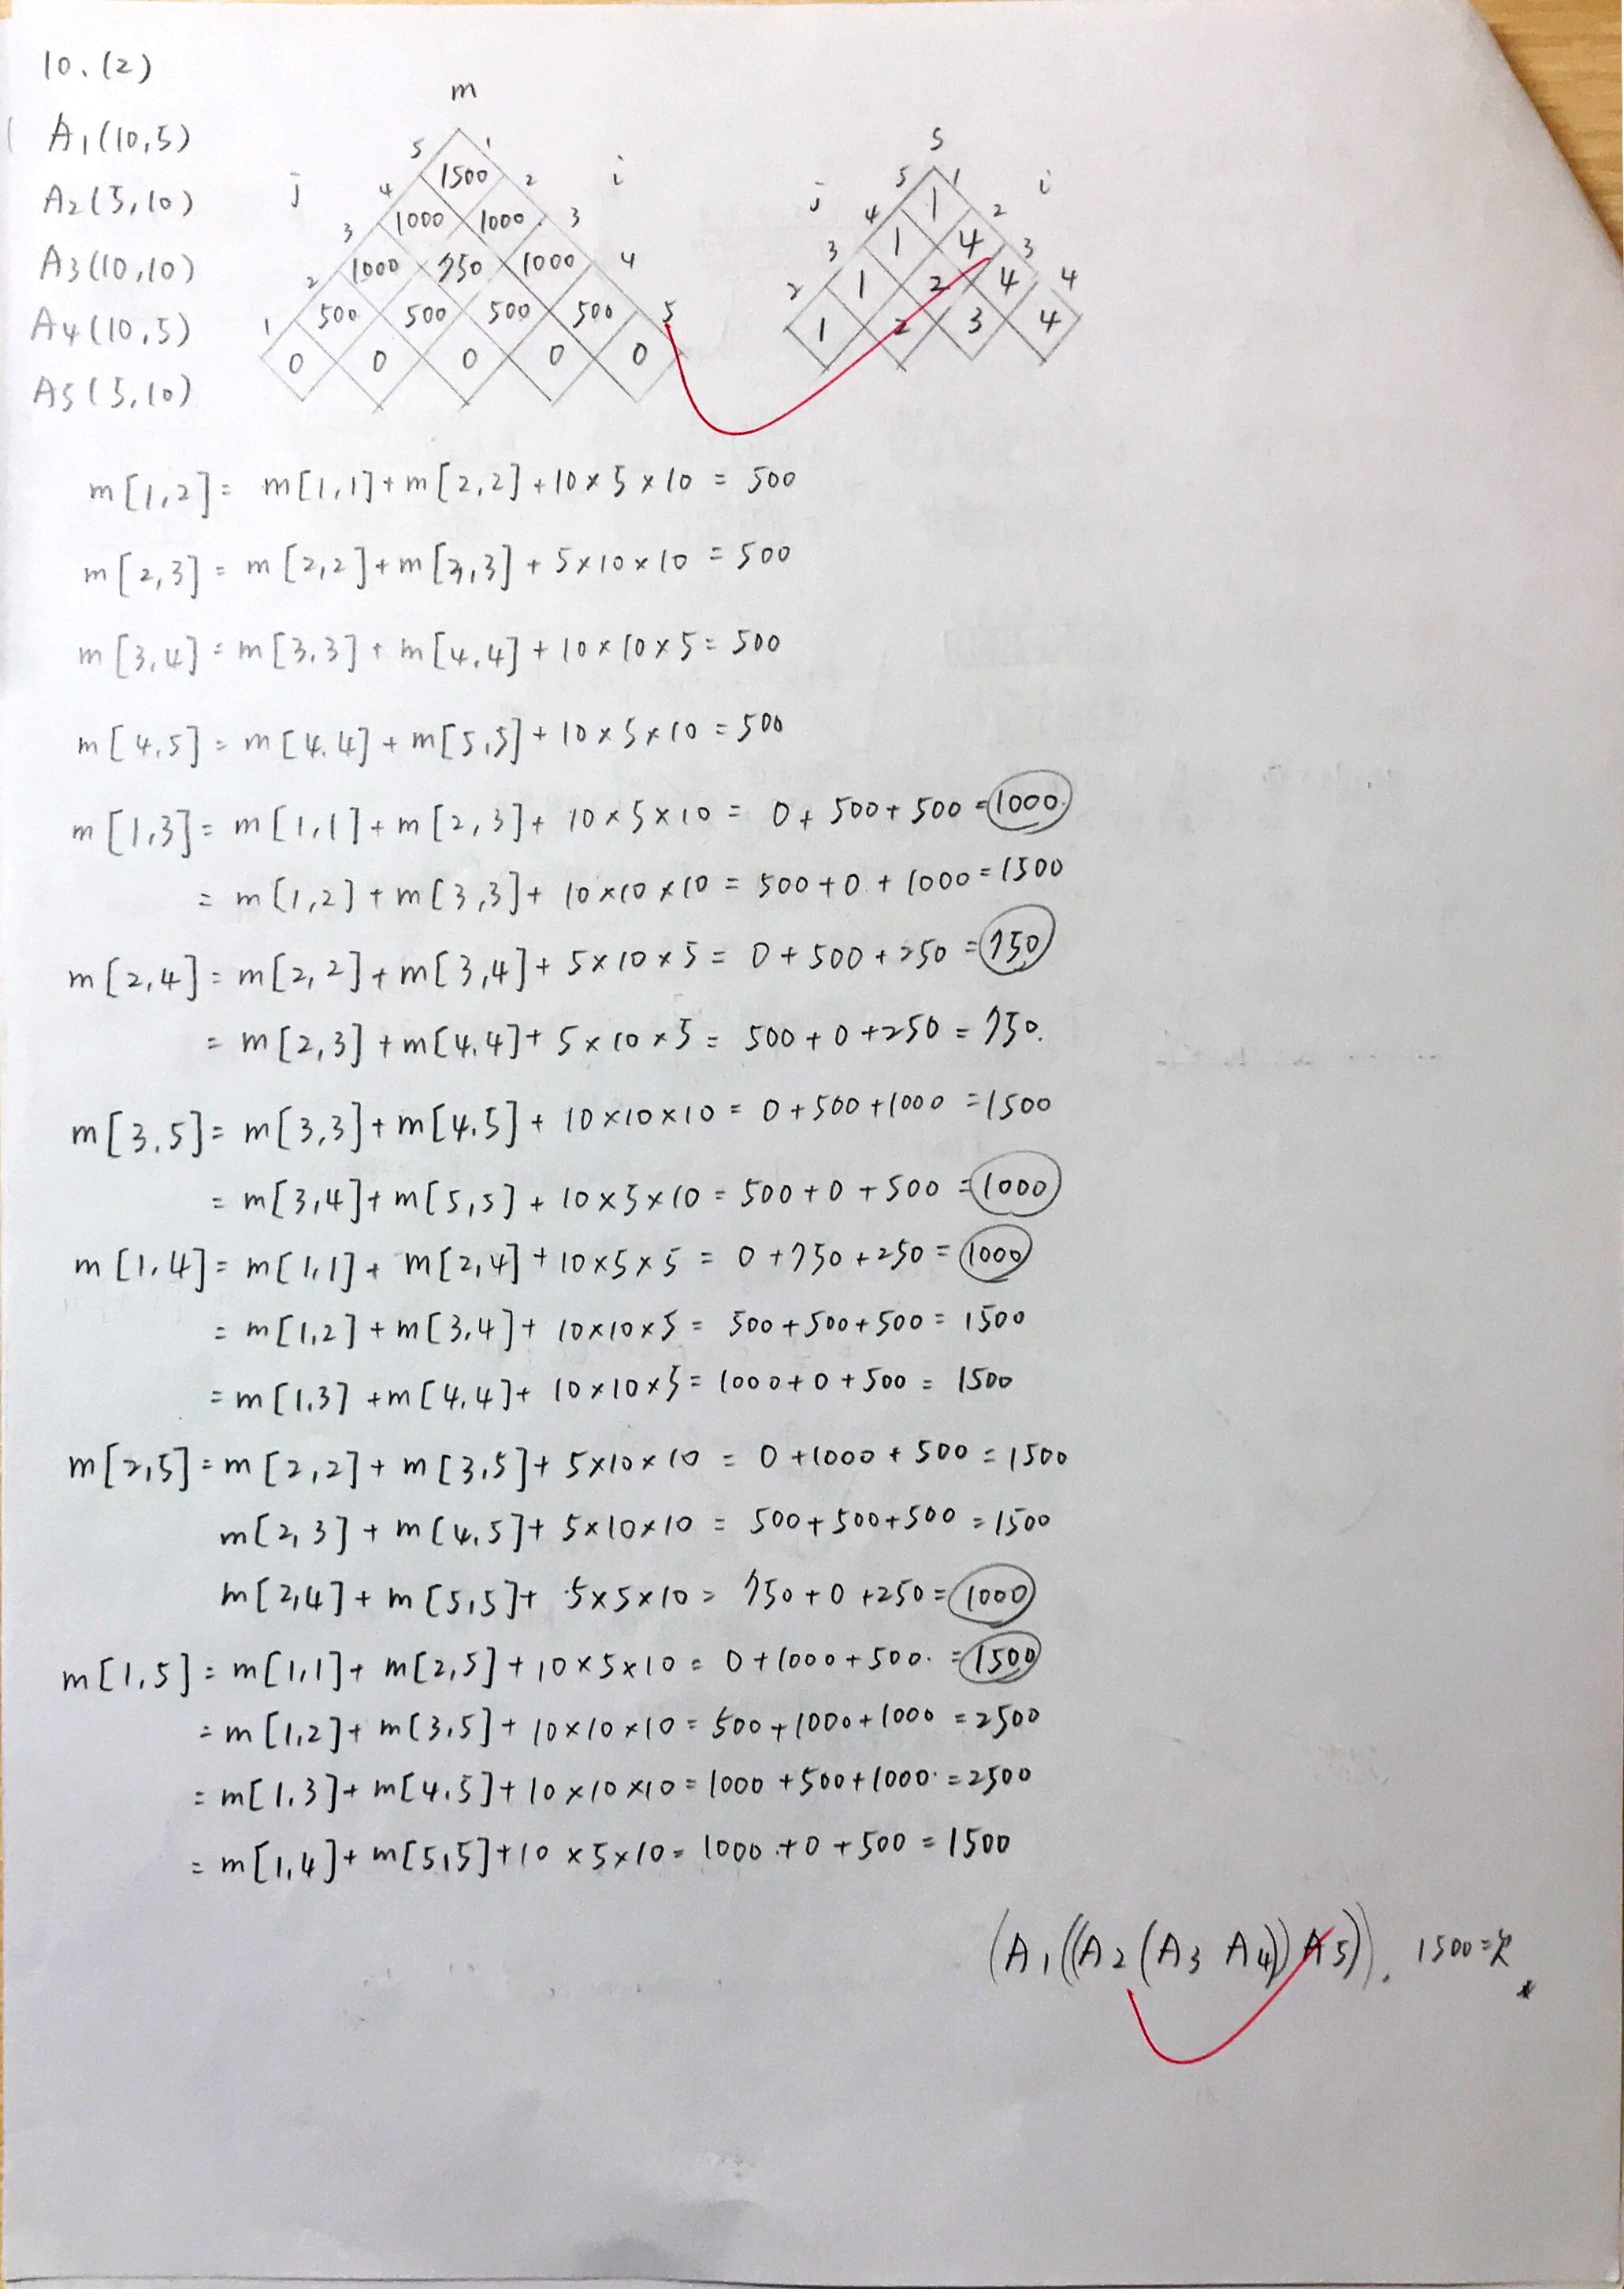 10. (2)
m
S
A1(10,5)
A2(5,10)
A3(10,10)
A4(10,5)
A5(5,10)
j
i
5 1
1500
4 2
1000 1000
3 3
1000 750 1000
2 4
500 500 500 500
1 5
0 0 0 0 0
j
i
5 1
1
4 2
1 4
3 3
1 2 4
2 4
1 2 3 4
m[1,2] = m[1,1]+m[2,2]+10×5×10 = 500
m[2,3] = m[2,2]+m[3,3]+5×10×10 = 500
m[3,4] = m[3,3]+m[4,4]+10×10×5 = 500
m[4,5] = m[4,4]+m[5,5]+10×5×10 = 500
m[1,3] = m[1,1]+m[2,3]+10×5×10 = 0+500+500 = 1000
= m[1,2]+m[3,3]+10×10×10 = 500+0+1000 = 1500
m[2,4] = m[2,2]+m[3,4]+5×10×5 = 0+500+250 = 750
= m[2,3]+m[4,4]+5×10×5 = 500+0+250 = 750.
m[3,5] = m[3,3]+m[4,5]+10×10×10 = 0+500+1000 = 1500
= m[3,4]+m[5,5]+10×5×10 = 500+0+500 = 1000
m[1,4] = m[1,1]+m[2,4]+10×5×5 = 0+750+250 = 1000
= m[1,2]+m[3,4]+10×10×5 = 500+500+500 = 1500
= m[1,3]+m[4,4]+10×10×5 = 1000+0+500 = 1500
m[2,5] = m[2,2]+m[3,5]+5×10×10 = 0+1000+500 = 1500
m[2,3]+m[4,5]+5×10×10 = 500+500+500 = 1500
m[2,4]+m[5,5]+5×5×10 = 750+0+250 = 1000
m[1,5] = m[1,1]+m[2,5]+10×5×10 = 0+1000+500 = 1500
= m[1,2]+m[3,5]+10×10×10 = 500+1000+1000 = 2500
= m[1,3]+m[4,5]+10×10×10 = 1000+500+1000 = 2500
= m[1,4]+m[5,5]+10×5×10 = 1000+0+500 = 1500
(A1((A2(A3 A4))A5)). 1500